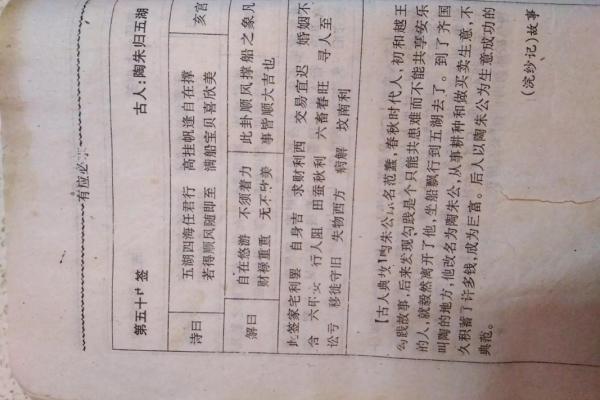 有应必
第五十签 古人:陶朱归五湖 亥宫
诗曰 五湖四海任君行 高挂帆逢自在撑
若得顺风随即至 满船宝贝喜欣美
解曰 自在悠游 不须着力 此卦顺风撑船之象凡
财禄重重 无不美 事皆顺大吉也
此签家宅利罢 自身吉 求财利西 交易宜迟 婚姻不
合 六甲女 行人阻 田蚕秋利 六畜春旺 寻人至
讼亏 移徙守旧 失物西方 病解 坟南利
【古人典故】陶朱公名范蠡,春秋时代人,初和越王
勾践故事,后来发现勾践是个只能共患难而不能共享安乐
的人,就毅然离开了他,坐船飘行到五湖去了。到了齐国
叫陶的地方,他改名为陶朱公,从事耕种和做买卖生意,不
久积蓄了许多钱,成为巨富。后人以陶朱公为生意成功的
典范。
(浣纱记)故事